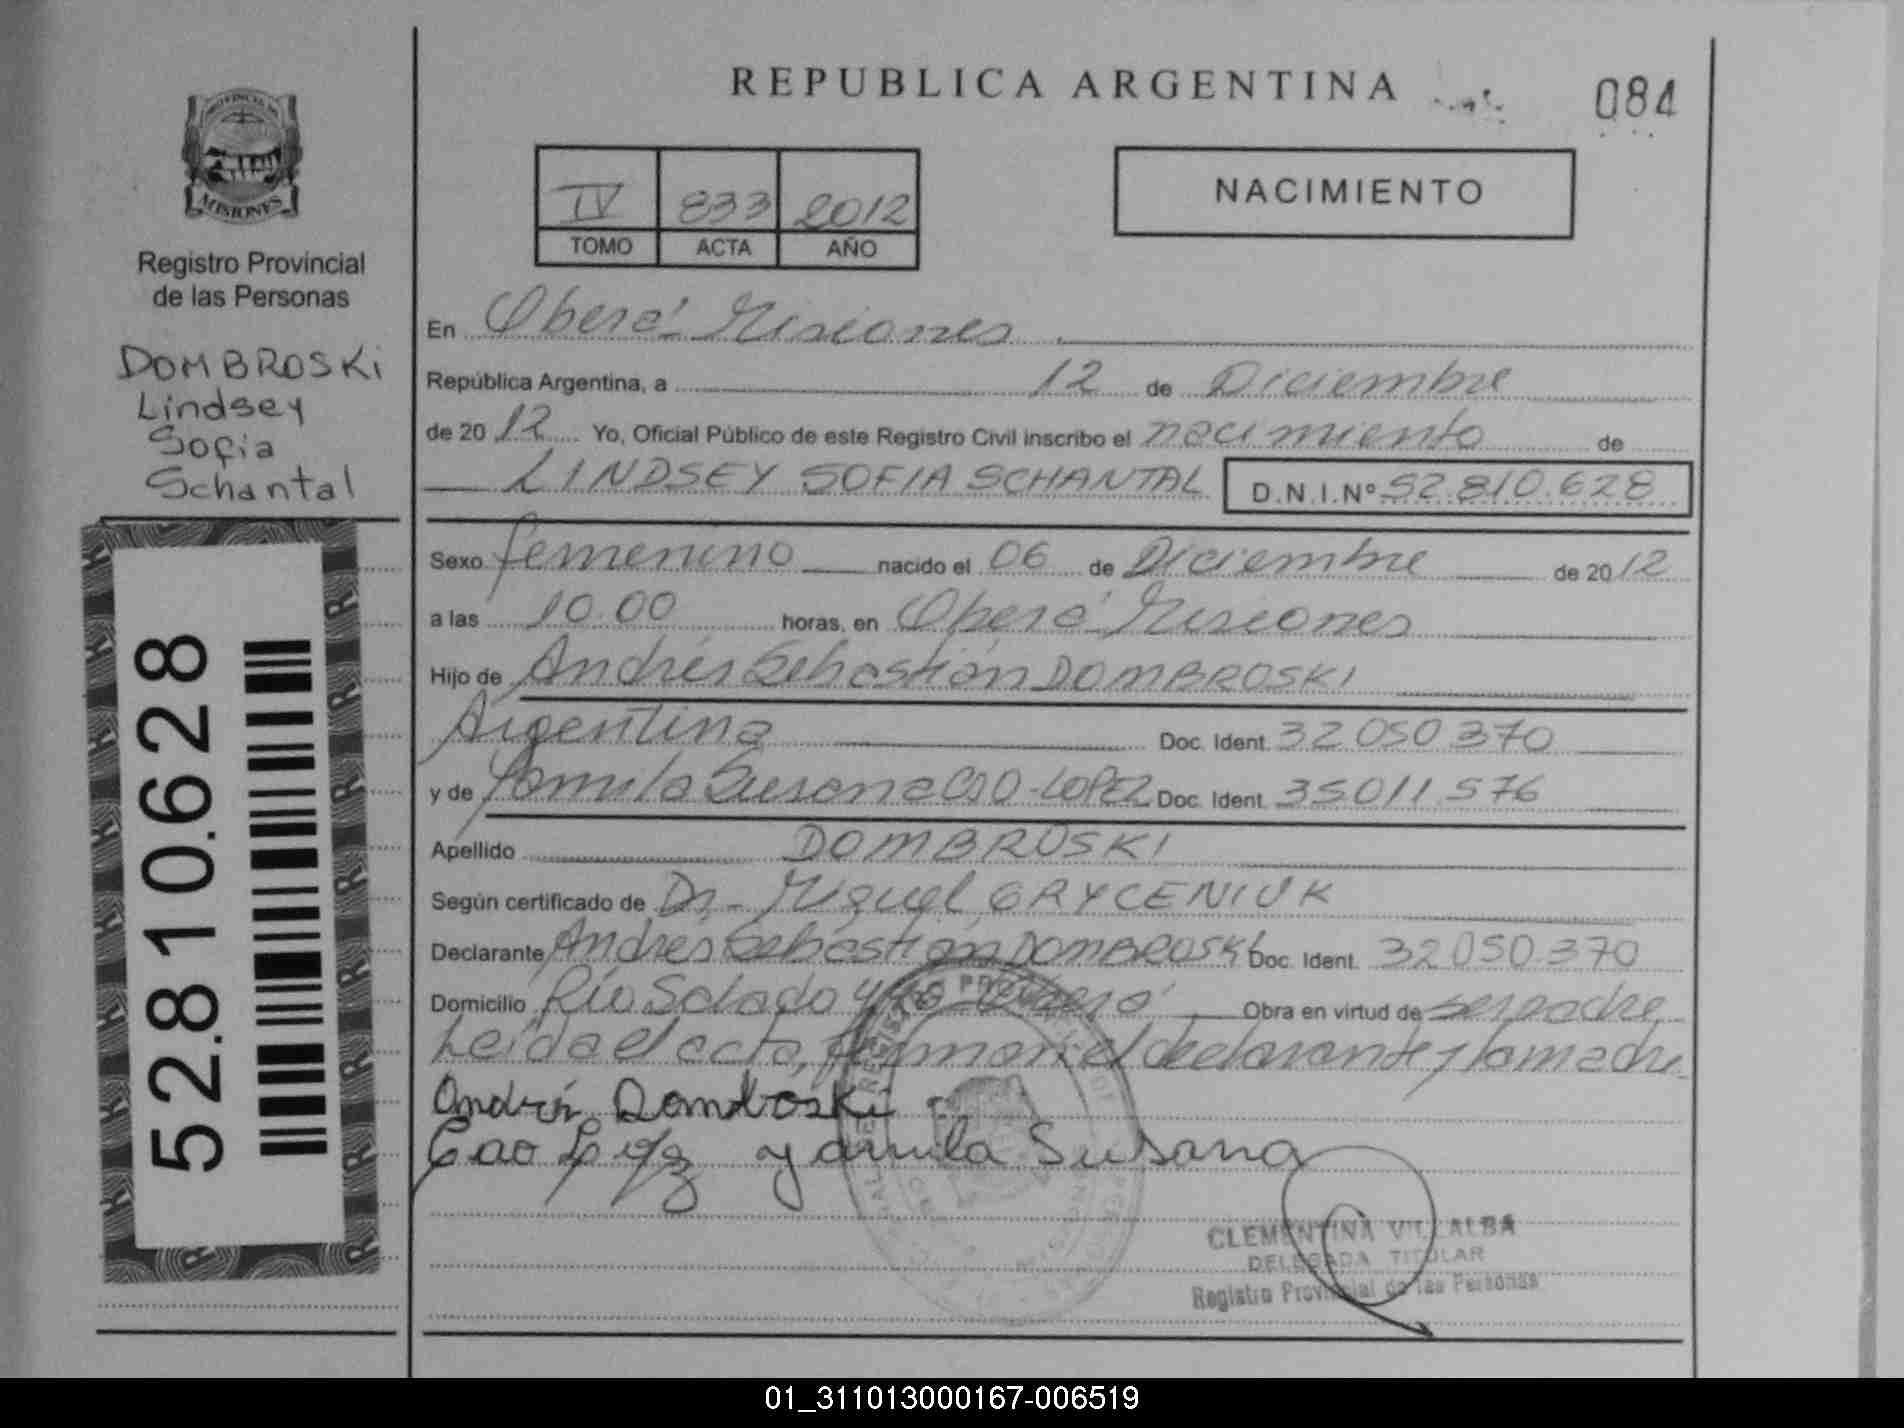 REPUBLICA ARGENTINA
084
PROVINCIA DE
MISIONES
Registro Provincial
de las Personas
DOMBROSKI
Lindsey
Sofia
Schantal
52.810.628
IV 833 2012
TOMO ACTA AÑO
NACIMIENTO
En Oberá Misiones
República Argentina, a 12 de Diciembre
de 2012 Yo, Oficial Público de este Registro Civil inscribo el nacimiento de
LINDSEY SOFIA SCHANTAL D.N.I.Nº 52.810.628
Sexo femenino nacido el 06 de Diciembre de 2012
a las 10.00 horas, en Oberá Misiones
Hijo de Andrés Sebastián DOMBROSKI
Argentina Doc. Ident. 32.050.370
y de Yamila Susana CAO-LOPEZ Doc. Ident. 35.011.576
Apellido DOMBROSKI
Según certificado de Dr. Miguel GRYCENIUK
Declarante Andrés Sebastián DOMBROSKI Doc. Ident. 32.050.370
Domicilio Río Salado y Oberá Obra en virtud de ser padre
Leida el acta, firman el declarante y la madre
Andrés Dombroski
Cao Lopez yamila Susana
CLEMENTINA VILLALBA
DELEGADA TITULAR
Registro Provincial de las Personas
01_311013000167-006519